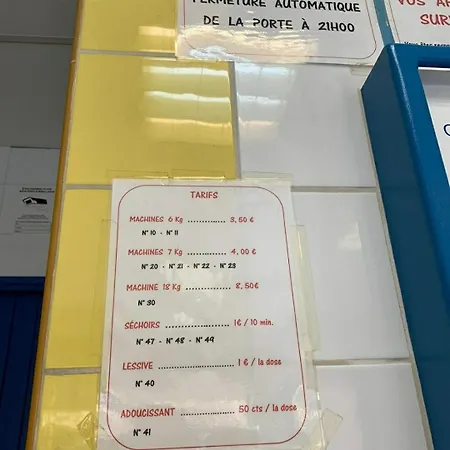 FERMETURE AUTOMATIQUE
DE LA PORTE À 21H00
VOS
TARIFS
MACHINES 6 Kg ............ 3,50 €
N° 10 - N° 11
MACHINES 7 Kg ............ 4,00 €
N° 20 - N° 21 - N° 22 - N° 23
MACHINE 18 Kg ............ 8,50€
N° 30
SÉCHOIRS ............ 1€ / 10 min.
N° 47 - N° 48 - N° 49
LESSIVE ............ 1 € / la dose
N° 40
ADOUCISSANT ............ 50 cts / la dose
N° 41